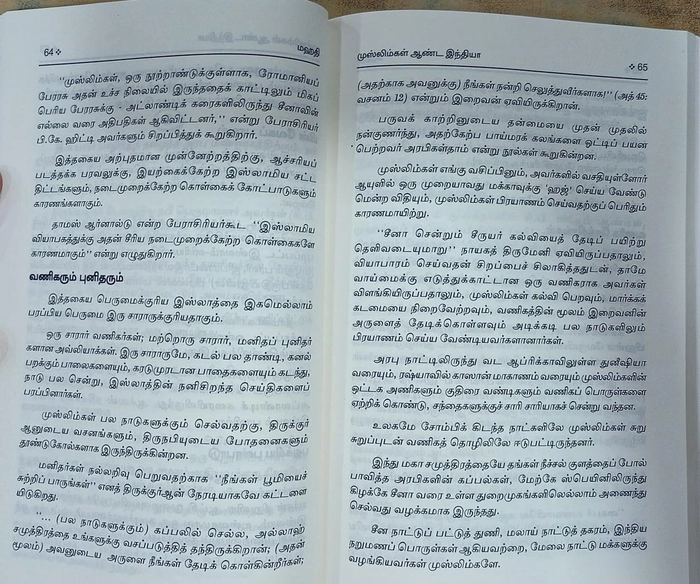 64 ❖ மஹதி
"முஸ்லிம்கள், ஒரு நூற்றாண்டுக்குள்ளாக, ரோமானியப்
பேரரசு அதன் உச்ச நிலையில் இருந்ததைக் காட்டிலும் மிகப்
பெரிய பேரரசுக்கு - அட்லாண்டிக் கரைகளிலிருந்து சீனாவின்
எல்லை வரை அதிபதிகள் ஆகிவிட்டனர்," என்று பேராசிரியர்
பி.கே. ஹிட்டி அவர்களும் சிறப்பித்துக் கூறுகிறார்.
இத்தகைய அற்புதமான முன்னேற்றத்திற்கு, ஆச்சரியப்
படத்தக்க பரவலுக்கு, இயற்கைக்கேற்ற இஸ்லாமிய சட்ட
திட்டங்களும், நடைமுறைக்கேற்ற கொள்கைக் கோட்பாடுகளும்
காரணங்களாகும்.
தாமஸ் ஆர்னால்டு என்ற பேராசிரியர்கூட "இஸ்லாமிய
வியாபகத்துக்கு அதன் சீரிய நடைமுறைக்கேற்ற கொள்கைகளே
காரணமாகும்" என்று எழுதுகிறார்.
வணிகரும் புனிதரும்
இத்தகைய பெருமைக்குரிய இஸ்லாத்தை இகமெல்லாம்
பரப்பிய பெருமை இரு சாராருக்குரியதாகும்.
ஒரு சாரார் வணிகர்கள்; மற்றொரு சாரார், மனிதப் புனிதர்
களான அவ்லியாக்கள். இரு சாராருமே, கடல் பல தாண்டி, கனல்
பறக்கும் பாலைகளையும், கரடுமுரடான பாதைகளையும் கடந்து,
நாடு பல சென்று, இஸ்லாத்தின் நனிசிறந்த செய்திகளைப்
பரப்பினார்கள்.
முஸ்லிம்கள் பல நாடுகளுக்கும் செல்வதற்கு, திருக்குர்
ஆனுடைய வசனங்களும், திருநபியுடைய போதனைகளும்
தூண்டுகோல்களாக இருந்திருக்கின்றன.
மனிதர்கள் நல்லறிவு பெறுவதற்காக "நீங்கள் பூமியைச்
சுற்றிப் பாருங்கள்" எனத் திருக்குர்ஆன் நேரடியாகவே கட்டளை
யிடுகிறது.
"... (பல நாடுகளுக்கும்) கப்பலில் செல்ல, அல்லாஹ்
சமுத்திரத்தை உங்களுக்கு வசப்படுத்தித் தந்திருக்கிறான்; (அதன்
மூலம்) அவனுடைய அருளை நீங்கள் தேடிக் கொள்கின்றீர்கள்;
முஸ்லிம்கள் ஆண்ட இந்தியா ❖ 65
(அதற்காக அவனுக்கு) நீங்கள் நன்றி செலுத்துவீர்களாக!" (அத் 45:
வசனம் 12) என்றும் இறைவன் ஏவியிருக்கிறான்.
பருவக் காற்றினுடைய தன்மையை முதன் முதலில்
நன்குணர்ந்து, அதற்கேற்ப பாய்மரக் கலங்களை ஓட்டிப் பயன்
பெற்றவர் அரபிகள்தாம் என்று நூல்கள் கூறுகின்றன.
முஸ்லிம்கள் எங்கு வசிப்பினும், அவர்களில் வசதியுள்ளோர்
ஆயுளில் ஒரு முறையாவது மக்காவுக்கு 'ஹஜ்' செய்ய வேண்டு
மென்ற விதியும், முஸ்லிம்கள் பிரயாணம் செய்வதற்குப் பெரிதும்
காரணமாயிற்று.
"சீனா சென்றும் சீருயர் கல்வியைத் தேடிப் பயிற்று
தெளிவடையுமாறு" நாயகத் திருமேனி ஏவியிருப்பதாலும்,
வியாபாரம் செய்வதன் சிறப்பைச் சிலாகித்ததுடன், தாமே
வாய்மைக்கு எடுத்துக்காட்டான ஒரு வணிகராக அவர்கள்
விளங்கியிருப்பதாலும், முஸ்லிம்கள் கல்வி பெறவும், மார்க்கக்
கடமையை நிறைவேற்றவும், வணிகத்தின் மூலம் இறைவனின்
அருளைத் தேடிக்கொள்ளவும் அடிக்கடி பல நாடுகளிலும்
பிரயாணம் செய்ய வேண்டியவர்களானார்கள்.
அரபு நாட்டிலிருந்து வட ஆப்ரிக்காவிலுள்ள துனீஷியா
வரையும், ரஷ்யாவில் காஸான் மாகாணம் வரையும் முஸ்லிம்களின்
ஒட்டக அணிகளும் குதிரை வண்டிகளும் வணிகப் பொருள்களை
ஏற்றிக் கொண்டு, சந்தைகளுக்குச் சாரி சாரியாகச் சென்று வந்தன.
உலகமே சோம்பிக் கிடந்த நாட்களிலே முஸ்லிம்கள் சுறு
சுறுப்புடன் வணிகத் தொழிலிலே ஈடுபட்டிருந்தனர்.
இந்து மகா சமுத்திரத்தையே தங்கள் நீச்சல் குளத்தைப் போல்
பாவித்த அரபிகளின் கப்பல்கள், மேற்கே ஸ்பெயினிலிருந்து
கிழக்கே சீனா வரை உள்ள துறைமுகங்களிலெல்லாம் அணைந்து
செல்வது வழக்கமாக இருந்தது.
சீன நாட்டுப் பட்டுத் துணி, மலாய் நாட்டுத் தகரம், இந்திய
நறுமணப் பொருள்கள் ஆகியவற்றை, மேலை நாட்டு மக்களுக்கு
வழங்கியவர்கள் முஸ்லிம்களே.